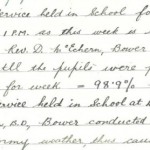 Service held in School fo
1 P.M. as this week is
Rev. D. McEchern, Bower
all the pupils were
for week = 98.9%
Service held in School at
, B.D., Bower conducted
stormy weather, thus caus